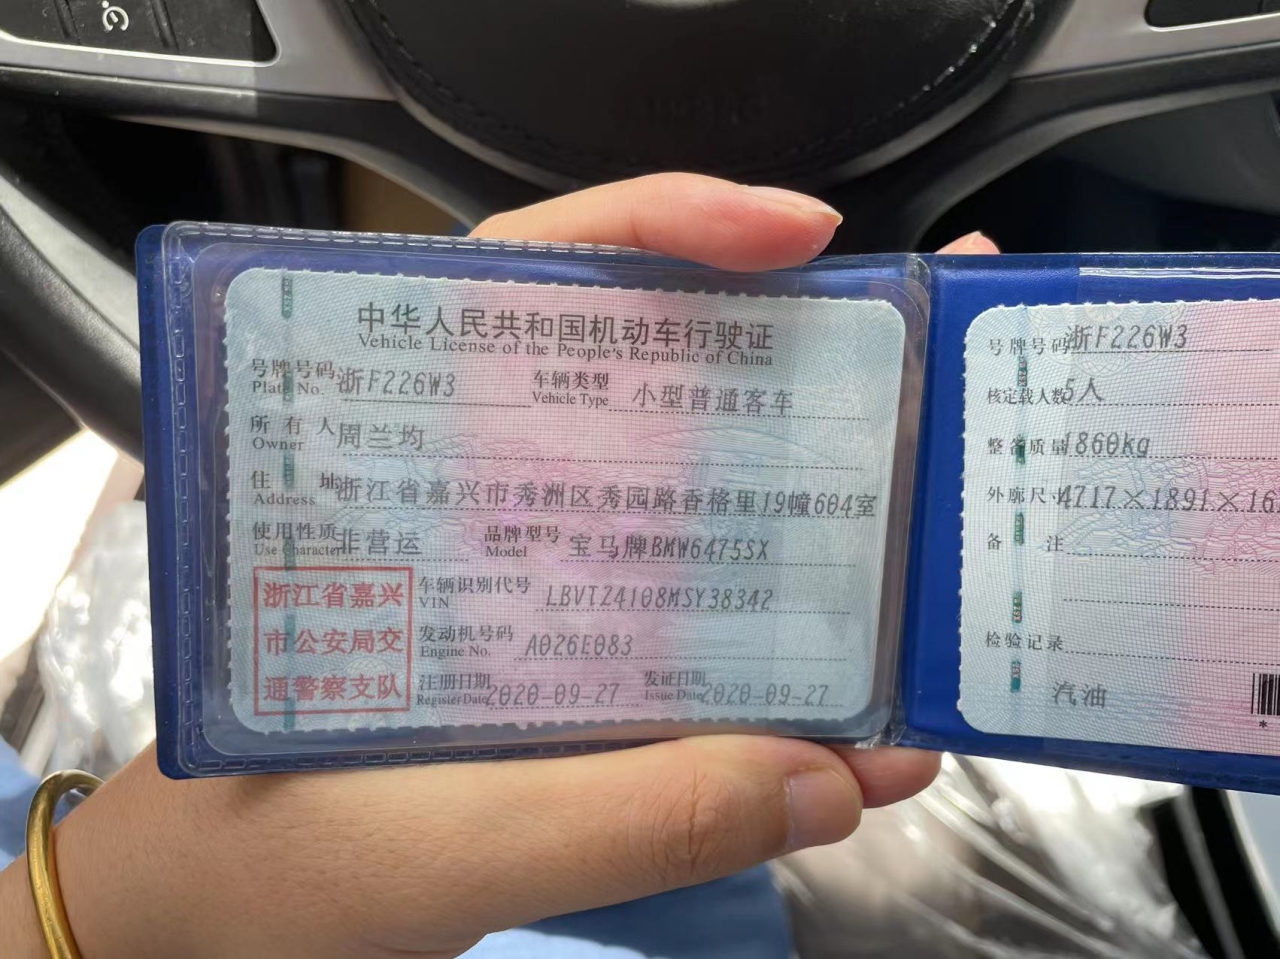 中华人民共和国机动车行驶证
Vehicle License of the People's Republic of China
号牌号码 浙F226W3 车辆类型 小型普通客车
Plate No. Vehicle Type
所有人 周兰均
Owner
住址 浙江省嘉兴市秀洲区秀园路香格里19幢604室
Address
使用性质 非营运 品牌型号 宝马牌BMW6475SX
Use Character Model
浙江省嘉兴
市公安局交
通警察支队
车辆识别代号 LBVTZ4108MSY38342
VIN
发动机号码 A026E083
Engine No.
注册日期 2020-09-27 发证日期 2020-09-27
Register Date Issue Date
号牌号码 浙F226W3
核定载人数 5人
整备质量 1860kg
外廓尺寸 4717×1891×16
备注
检验记录
汽油
*